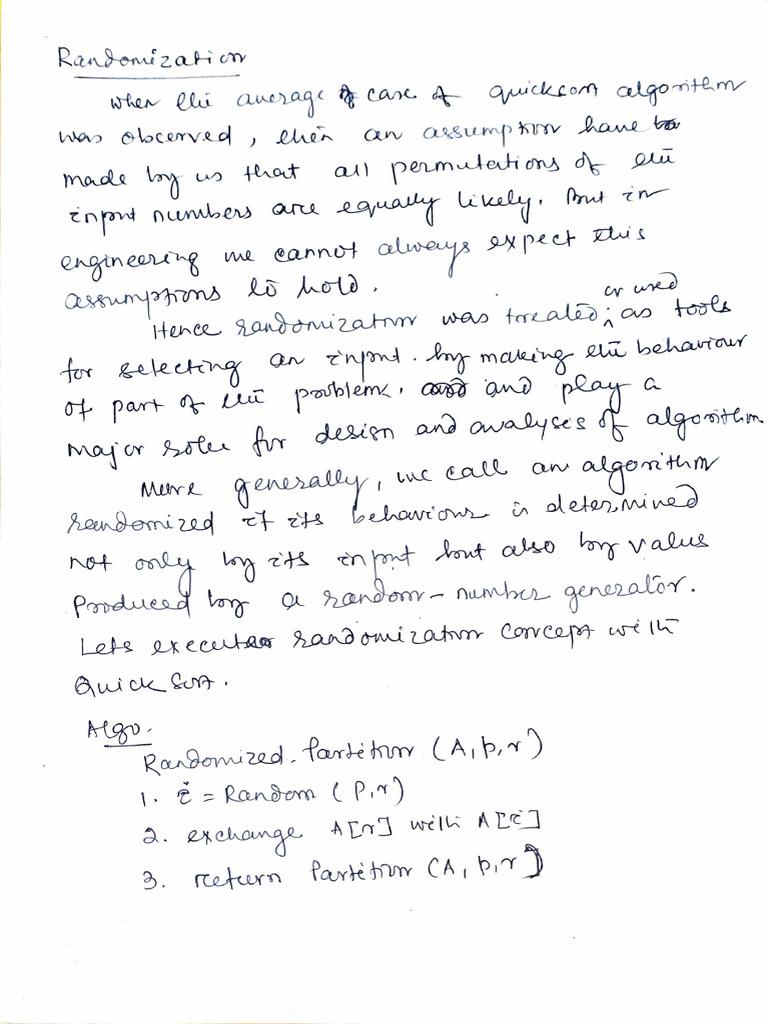 Randomization
When the average case of quicksort algorithm
was observed, then an assumption have to
made by us that all permutations of the
input numbers are equally likely. But in
engineering we cannot always expect this
assumptions to hold.
or used
Hence randomization was treated ^ as tools
for selecting an input. by making the behaviour
of part of the problem. and play a
major role for design and analyses of algorithm
More generally, we call an algorithm
randomized if its behaviour is determined
not only by its input but also by value
Produced by a random-number generator.
Lets execute randomization concept with
Quick Sort.
Algo.
Randomized-Partition (A, p, r)
1. i = Random (P, r)
2. exchange A[r] with A[i]
3. return Partition (A, p, r)